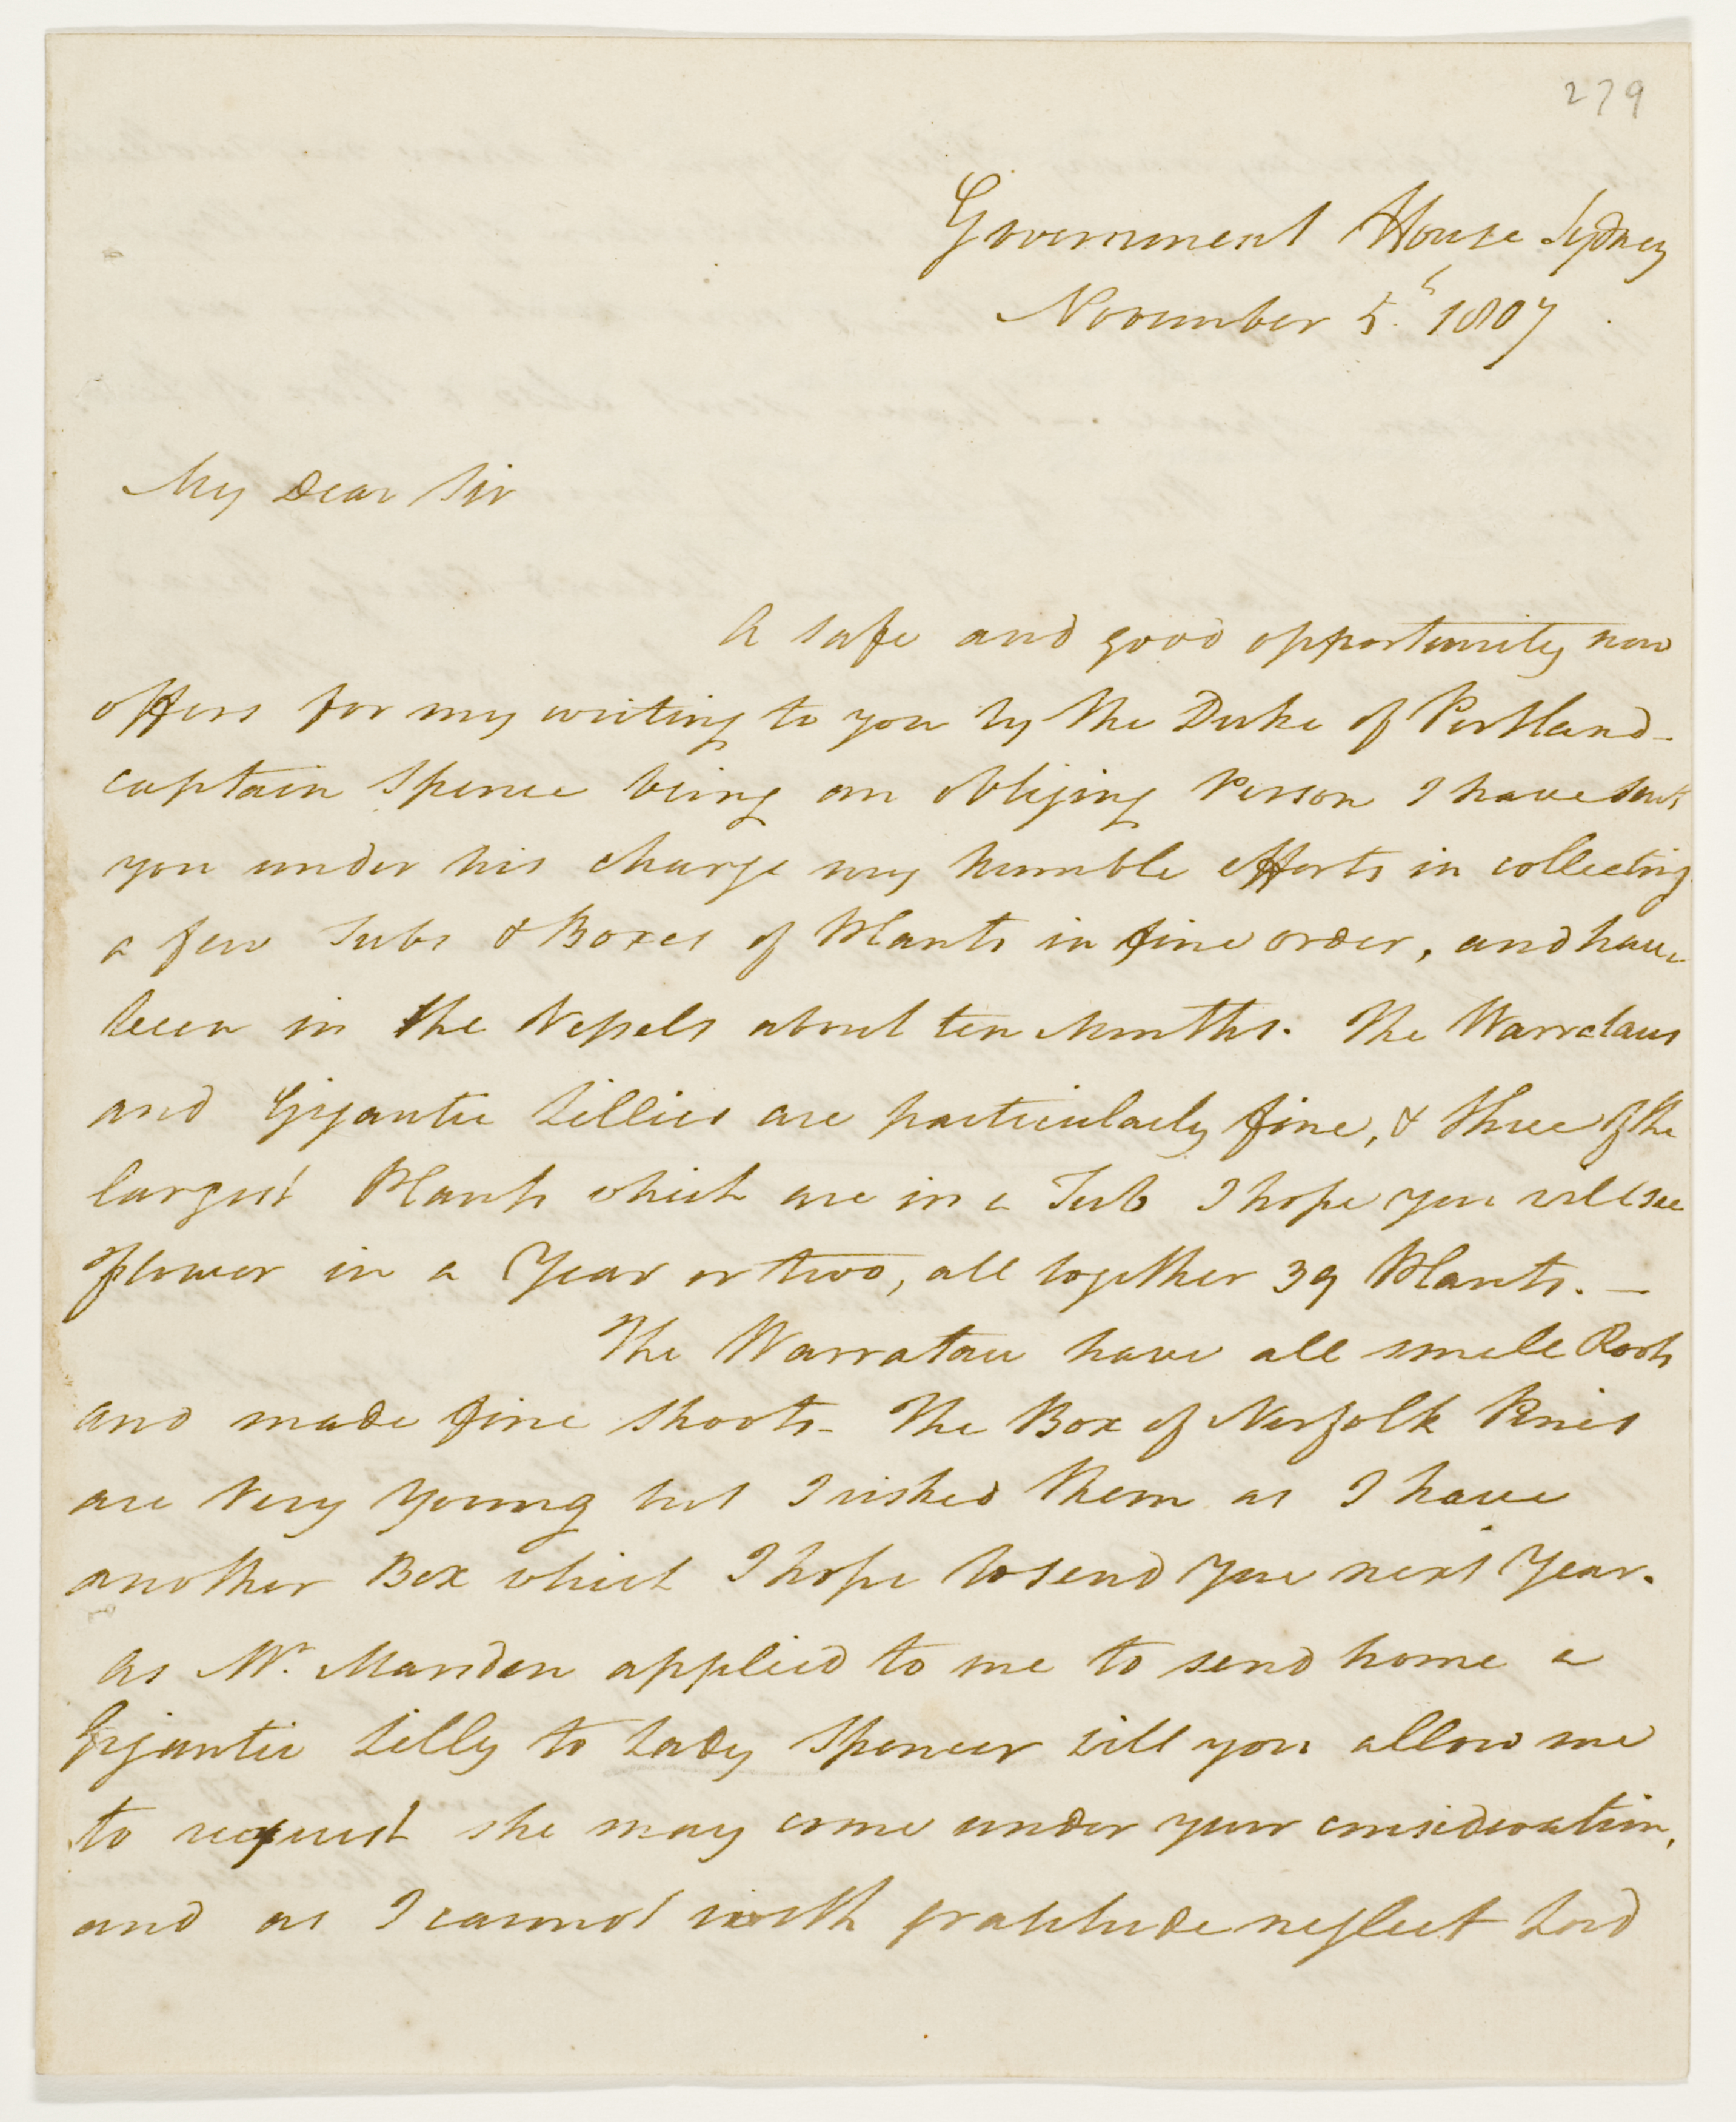 279
Government House Sydney
November 5.th 1807
My Dear Sir
A safe and good opportunity now
offers for my writing to you by the Duke of Portland -
captain Spence being an obliging Person I have sent
you under his charge my humble efforts in collecting
a few Tubs & Boxes of Plants in fine order, and have
been in the Vessels about ten Months. The Warrataus
and Gigantic Lillies are particularly fine, & three of the
largest Plants which are in a Tub I hope you will see
flower in a Year or two, all together 39 Plants. —
The Warratau have all small Roots
and made fine shoots - The Box of Norfolk Pines
are Very Young but I risked them as I have
another Box which I hope to send you next Year.
As Mr. Marsden applied to me to send home a
Gigantic Lilly to Lady Spencer will you allow me
to request she may come under your consideration,
and as I cannot with gratitude neglect Lord